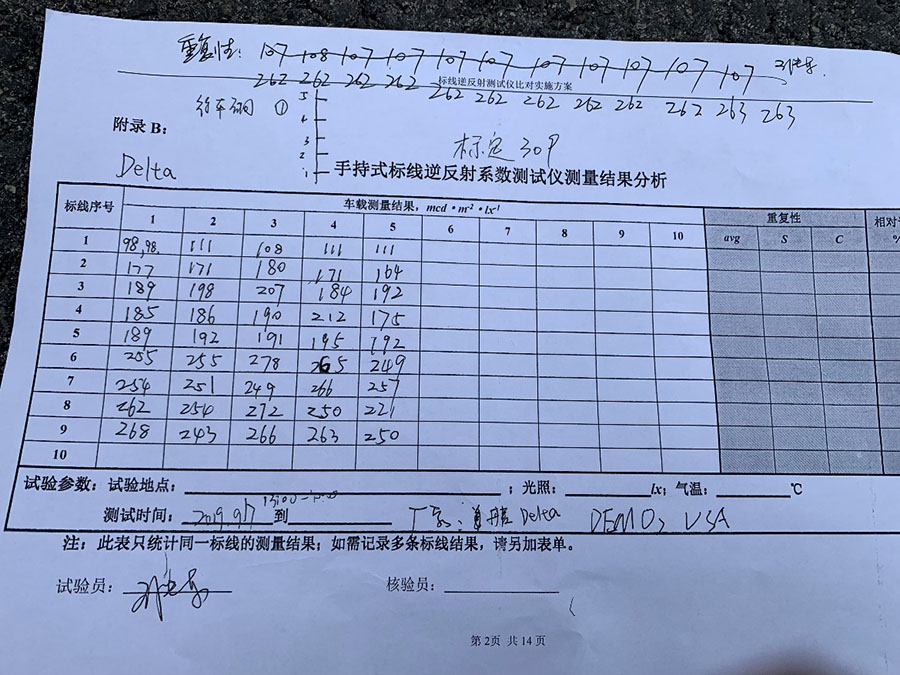 重复性: 107 108 107 107 107 107 107 107 107 107 107
标线逆反射测试仪比对实施方案
262 262 262 262 262 262 262 262 262 262 263 263
①
5
4
3
2
1
附录 B:
标定 309
Delta
手持式标线逆反射系数测试仪测量结果分析
标线序号 车载测量结果, mcd·m⁻²·lx⁻¹ 重复性 相对
1 2 3 4 5 6 7 8 9 10 avg S C %
1 98,98. 111 108 111 111
2 177 171 180 171 164
3 189 198 207 184 192
4 185 186 190 212 175
5 189 192 191 195 192
6 255 255 278 265 249
7 254 251 249 266 257
8 262 254 272 250 221
9 268 243 266 263 250
10
试验参数: 试验地点: ; 光照: lx; 气温: ℃
测试时间: 2019.9.17 到 Delta DEMO, USA
注: 此表只统计同一标线的测量结果; 如需记录多条标线结果, 请另加表单。
试验员: 核验员:
第 2 页 共 14 页